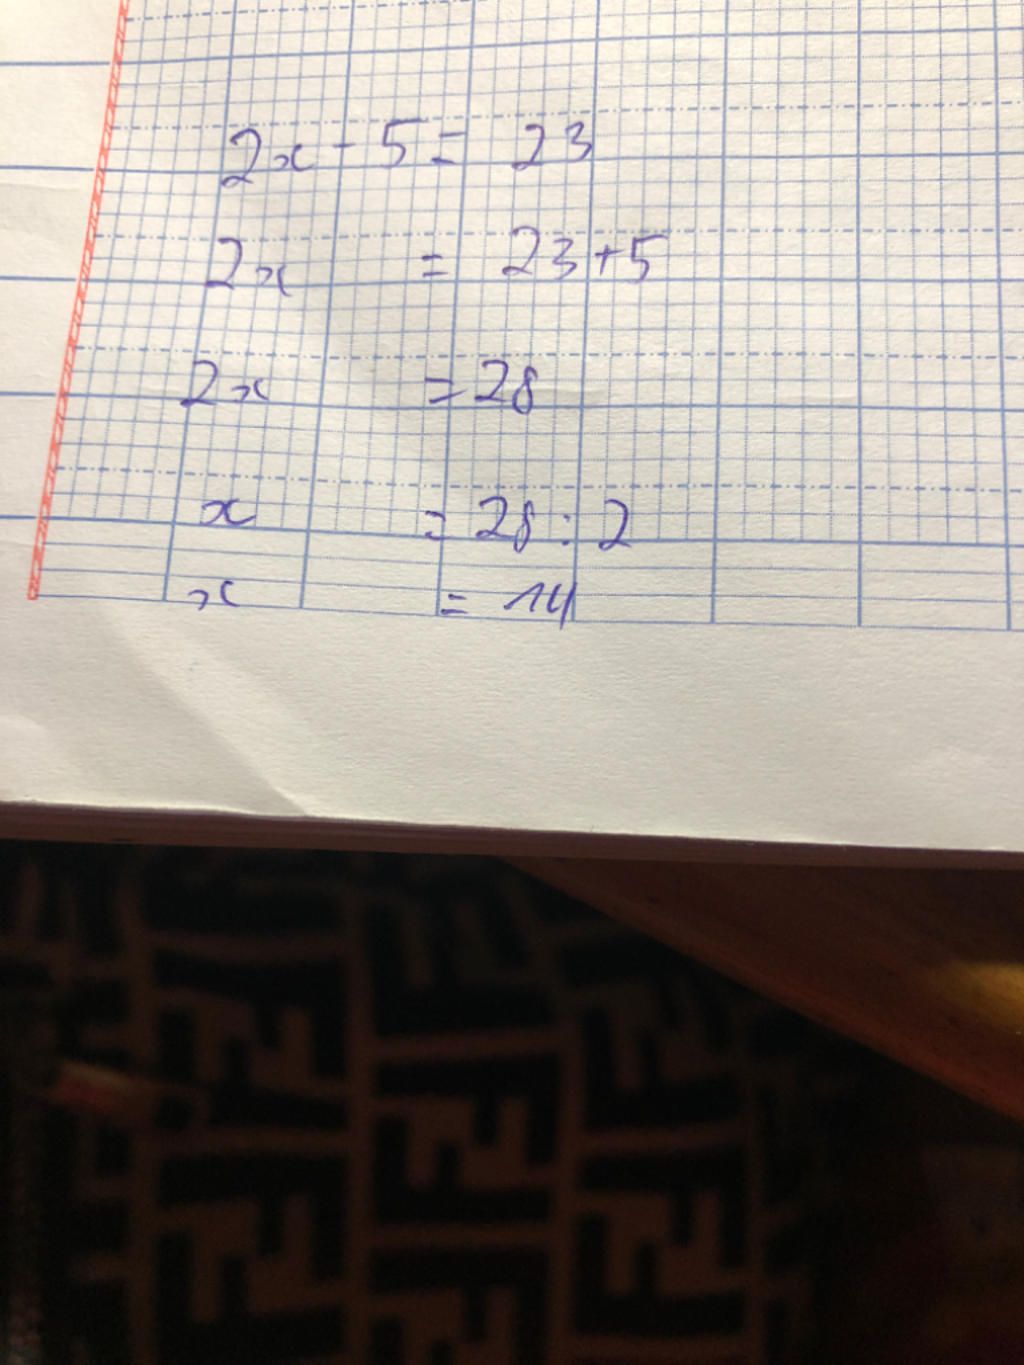 2x - 5 = 23
2x = 23 + 5
2x = 28
x = 28 : 2
x = 14